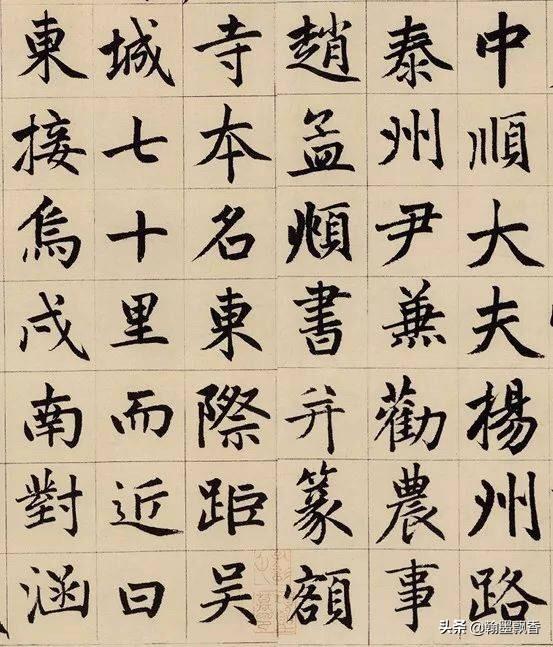 中順大夫楊州路
泰州尹兼勸農事
趙孟頫書并篆額
寺本名東際距吴
城七十里而近曰
東接烏戍南對涵
头条 @翰墨飘香